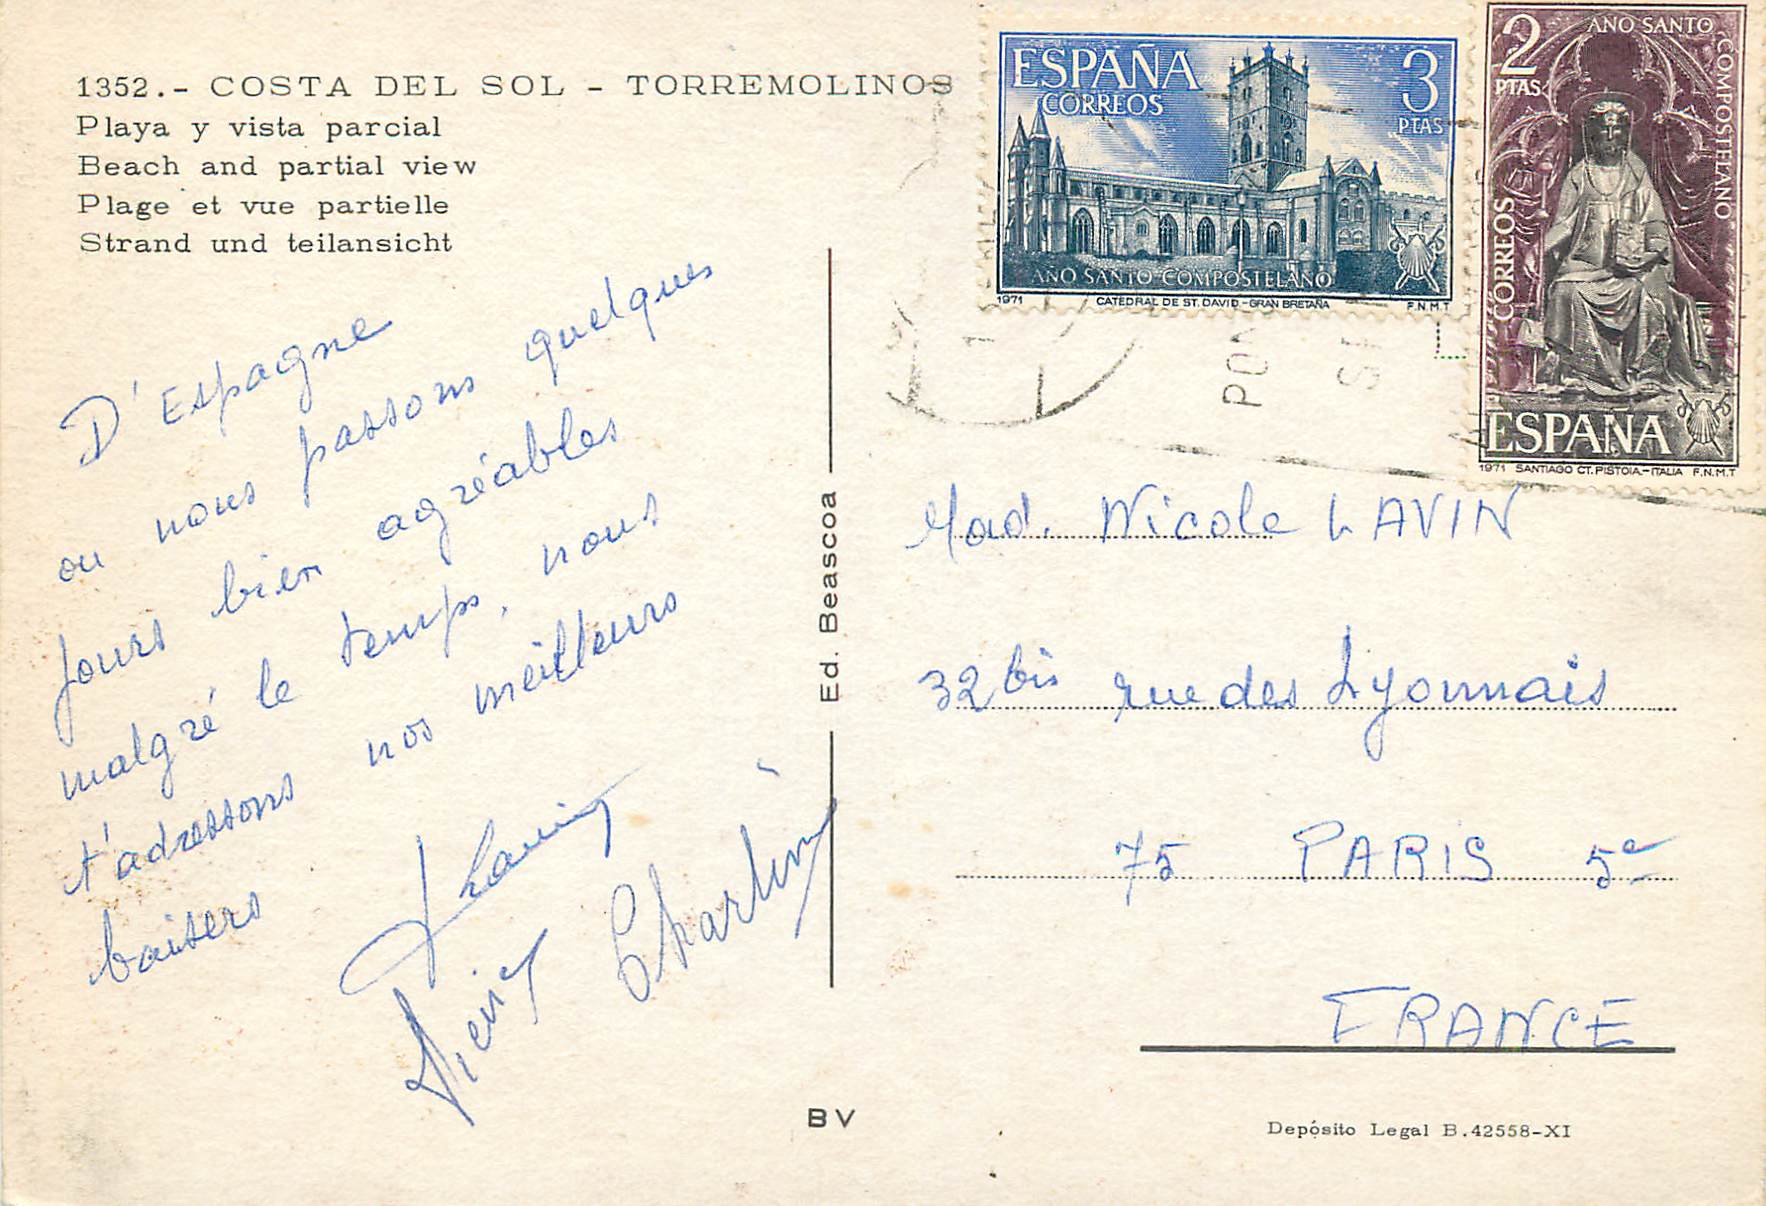 1352.- COSTA DEL SOL - TORREMOLINOS
Playa y vista parcial
Beach and partial view
Plage et vue partielle
Strand und teilansicht
D'Espagne
ou nous passons quelques
jours bien agréables
malgré le temps, nous
t'adressons nos meilleurs
baisers
Ed. Beascoa
BV
ESPAÑA
CORREOS
3
PTAS
AÑO SANTO COMPOSTELANO
1971 CATEDRAL DE ST. DAVID.-GRAN BRETAÑA F.N.M.T
2
PTAS
AÑO SANTO COMPOSTELANO
CORREOS
ESPAÑA
1971 SANTIAGO CT. PISTOIA.-ITALIA F.N.M.T
Mad. Nicole LAVIN
32 bis rue des Lyonnais
75 PARIS 5e
FRANCE
Depósito Legal B.42558-XI